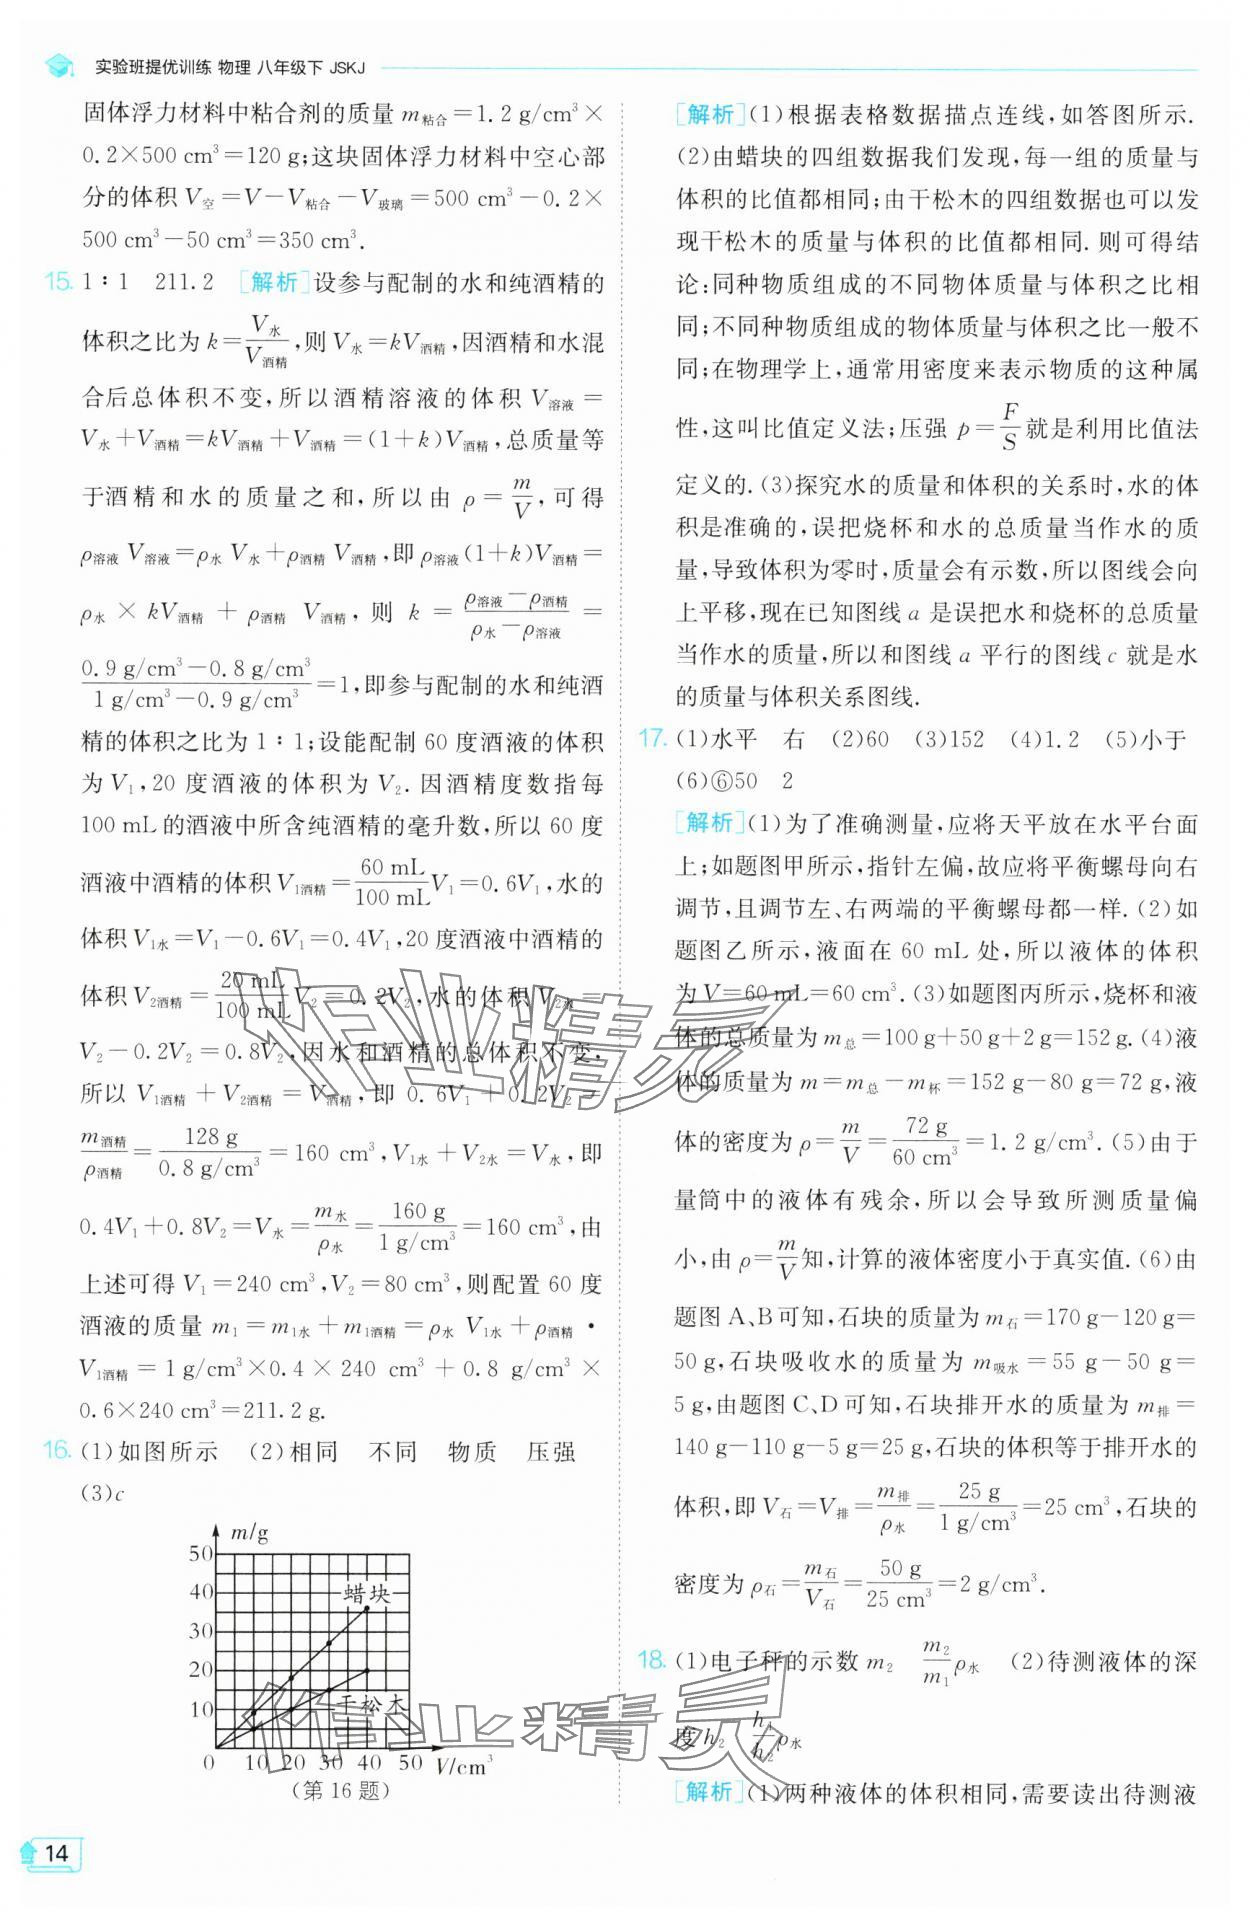 实验班提优训练 物理 八年级下 JSKJ
固体浮力材料中粘合剂的质量 m粘合=1.2 g/cm³×
0.2×500 cm³=120 g;这块固体浮力材料中空心部
分的体积 V空=V-V粘合-V玻璃=500 cm³-0.2×
500 cm³-50 cm³=350 cm³.
15. 1∶1 211.2 [解析]设参与配制的水和纯酒精的
体积之比为 k=V水/V酒精,则 V水=kV酒精,因酒精和水混
合后总体积不变,所以酒精溶液的体积 V溶液=
V水+V酒精=kV酒精+V酒精=(1+k)V酒精,总质量等
于酒精和水的质量之和,所以由 ρ=m/V,可得
ρ溶液 V溶液=ρ水 V水+ρ酒精 V酒精,即 ρ溶液(1+k)V酒精=
ρ水×kV酒精+ρ酒精 V酒精,则 k=(ρ溶液-ρ酒精)/(ρ水-ρ溶液)=
(0.9 g/cm³-0.8 g/cm³)/(1 g/cm³-0.9 g/cm³)=1,即参与配制的水和纯酒
精的体积之比为 1∶1;设能配制 60 度酒液的体积
为 V₁,20 度酒液的体积为 V₂.因酒精度数指每
100 mL的酒液中所含纯酒精的毫升数,所以 60 度
酒液中酒精的体积 V1酒精=60 mL/100 mL V₁=0.6V₁,水的
体积 V1水=V₁-0.6V₁=0.4V₁,20 度酒液中酒精的
体积 V2酒精=20 mL/100 mL V₂=0.2V₂,水的体积 V2水=
V₂-0.2V₂=0.8V₂,因水和酒精的总体积不变,
所以 V1酒精+V2酒精=V酒精,即 0.6V₁+0.2V₂=
m酒精/ρ酒精=128 g/0.8 g/cm³=160 cm³,V1水+V2水=V水,即
0.4V₁+0.8V₂=V水=m水/ρ水=160 g/1 g/cm³=160 cm³,由
上述可得 V₁=240 cm³,V₂=80 cm³,则配置 60 度
酒液的质量 m₁=m1水+m1酒精=ρ水 V1水+ρ酒精·
V1酒精=1 g/cm³×0.4×240 cm³+0.8 g/cm³×
0.6×240 cm³=211.2 g.
16. (1)如图所示 (2)相同 不同 物质 压强
(3)c
m/g
50
40
30
20
10
0 10 20 30 40 50 V/cm³
蜡块
干松木
(第 16 题)
14
[解析](1)根据表格数据描点连线,如答图所示.
(2)由蜡块的四组数据我们发现,每一组的质量与
体积的比值都相同;由干松木的四组数据也可以发
现干松木的质量与体积的比值都相同.则可得结
论:同种物质组成的不同物体质量与体积之比相
同;不同种物质组成的物体质量与体积之比一般不
同;在物理学上,通常用密度来表示物质的这种属
性,这叫比值定义法;压强 p=F/S就是利用比值法
定义的.(3)探究水的质量和体积的关系时,水的体
积是准确的,误把烧杯和水的总质量当作水的质
量,导致体积为零时,质量会有示数,所以图线会向
上平移,现在已知图线 a 是误把水和烧杯的总质量
当作水的质量,所以和图线 a 平行的图线 c 就是水
的质量与体积关系图线.
17. (1)水平 右 (2)60 (3)152 (4)1.2 (5)小于
(6)⑥50 2
[解析](1)为了准确测量,应将天平放在水平台面
上;如题图甲所示,指针左偏,故应将平衡螺母向右
调节,且调节左、右两端的平衡螺母都一样.(2)如
题图乙所示,液面在 60 mL 处,所以液体的体积
为 V=60 mL=60 cm³.(3)如题图丙所示,烧杯和液
体的总质量为 m总=100 g+50 g+2 g=152 g.(4)液
体的质量为 m=m总-m杯=152 g-80 g=72 g,液
体的密度为 ρ=m/V=72 g/60 cm³=1.2 g/cm³.(5)由于
量筒中的液体有残余,所以会导致所测质量偏
小,由 ρ=m/V知,计算的液体密度小于真实值.(6)由
题图 A、B可知,石块的质量为 m石=170 g-120 g=
50 g,石块吸收水的质量为 m吸水=55 g-50 g=
5 g,由题图 C、D可知,石块排开水的质量为 m排=
140 g-110 g-5 g=25 g,石块的体积等于排开水的
体积,即 V石=V排=m排/ρ水=25 g/1 g/cm³=25 cm³,石块的
密度为 ρ石=m石/V石=50 g/25 cm³=2 g/cm³.
18. (1)电子秤的示数 m₂ m₂/m₁ρ水 (2)待测液体的深
度 h₂ h₁/h₂ρ水
[解析](1)两种液体的体积相同,需要读出待测液
作业精灵
作业精灵